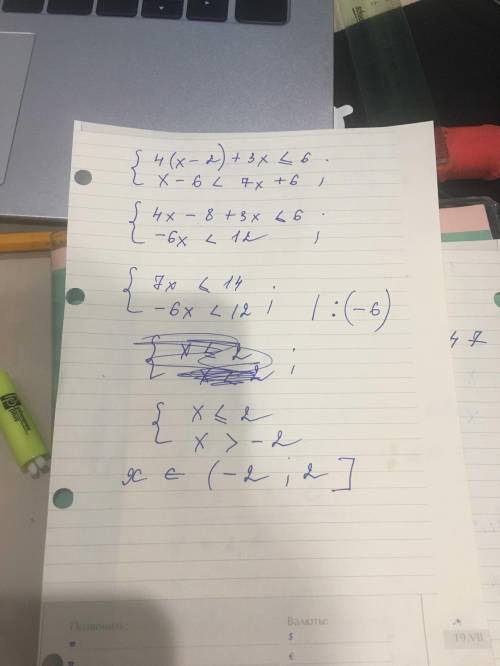 4(x-2)+3x ≤ 6 .
x-6 < 7x+6 ;
4x-8+3x ≤ 6 .
-6x < 12 ;
7x ≤ 14 .
-6x < 12 ; | : (-6)
x ≤ 2
;
x ≤ 2
x > -2
x ∈ (-2 ; 2]
47
Позвонить:
Валюты:
$
€
19.VII